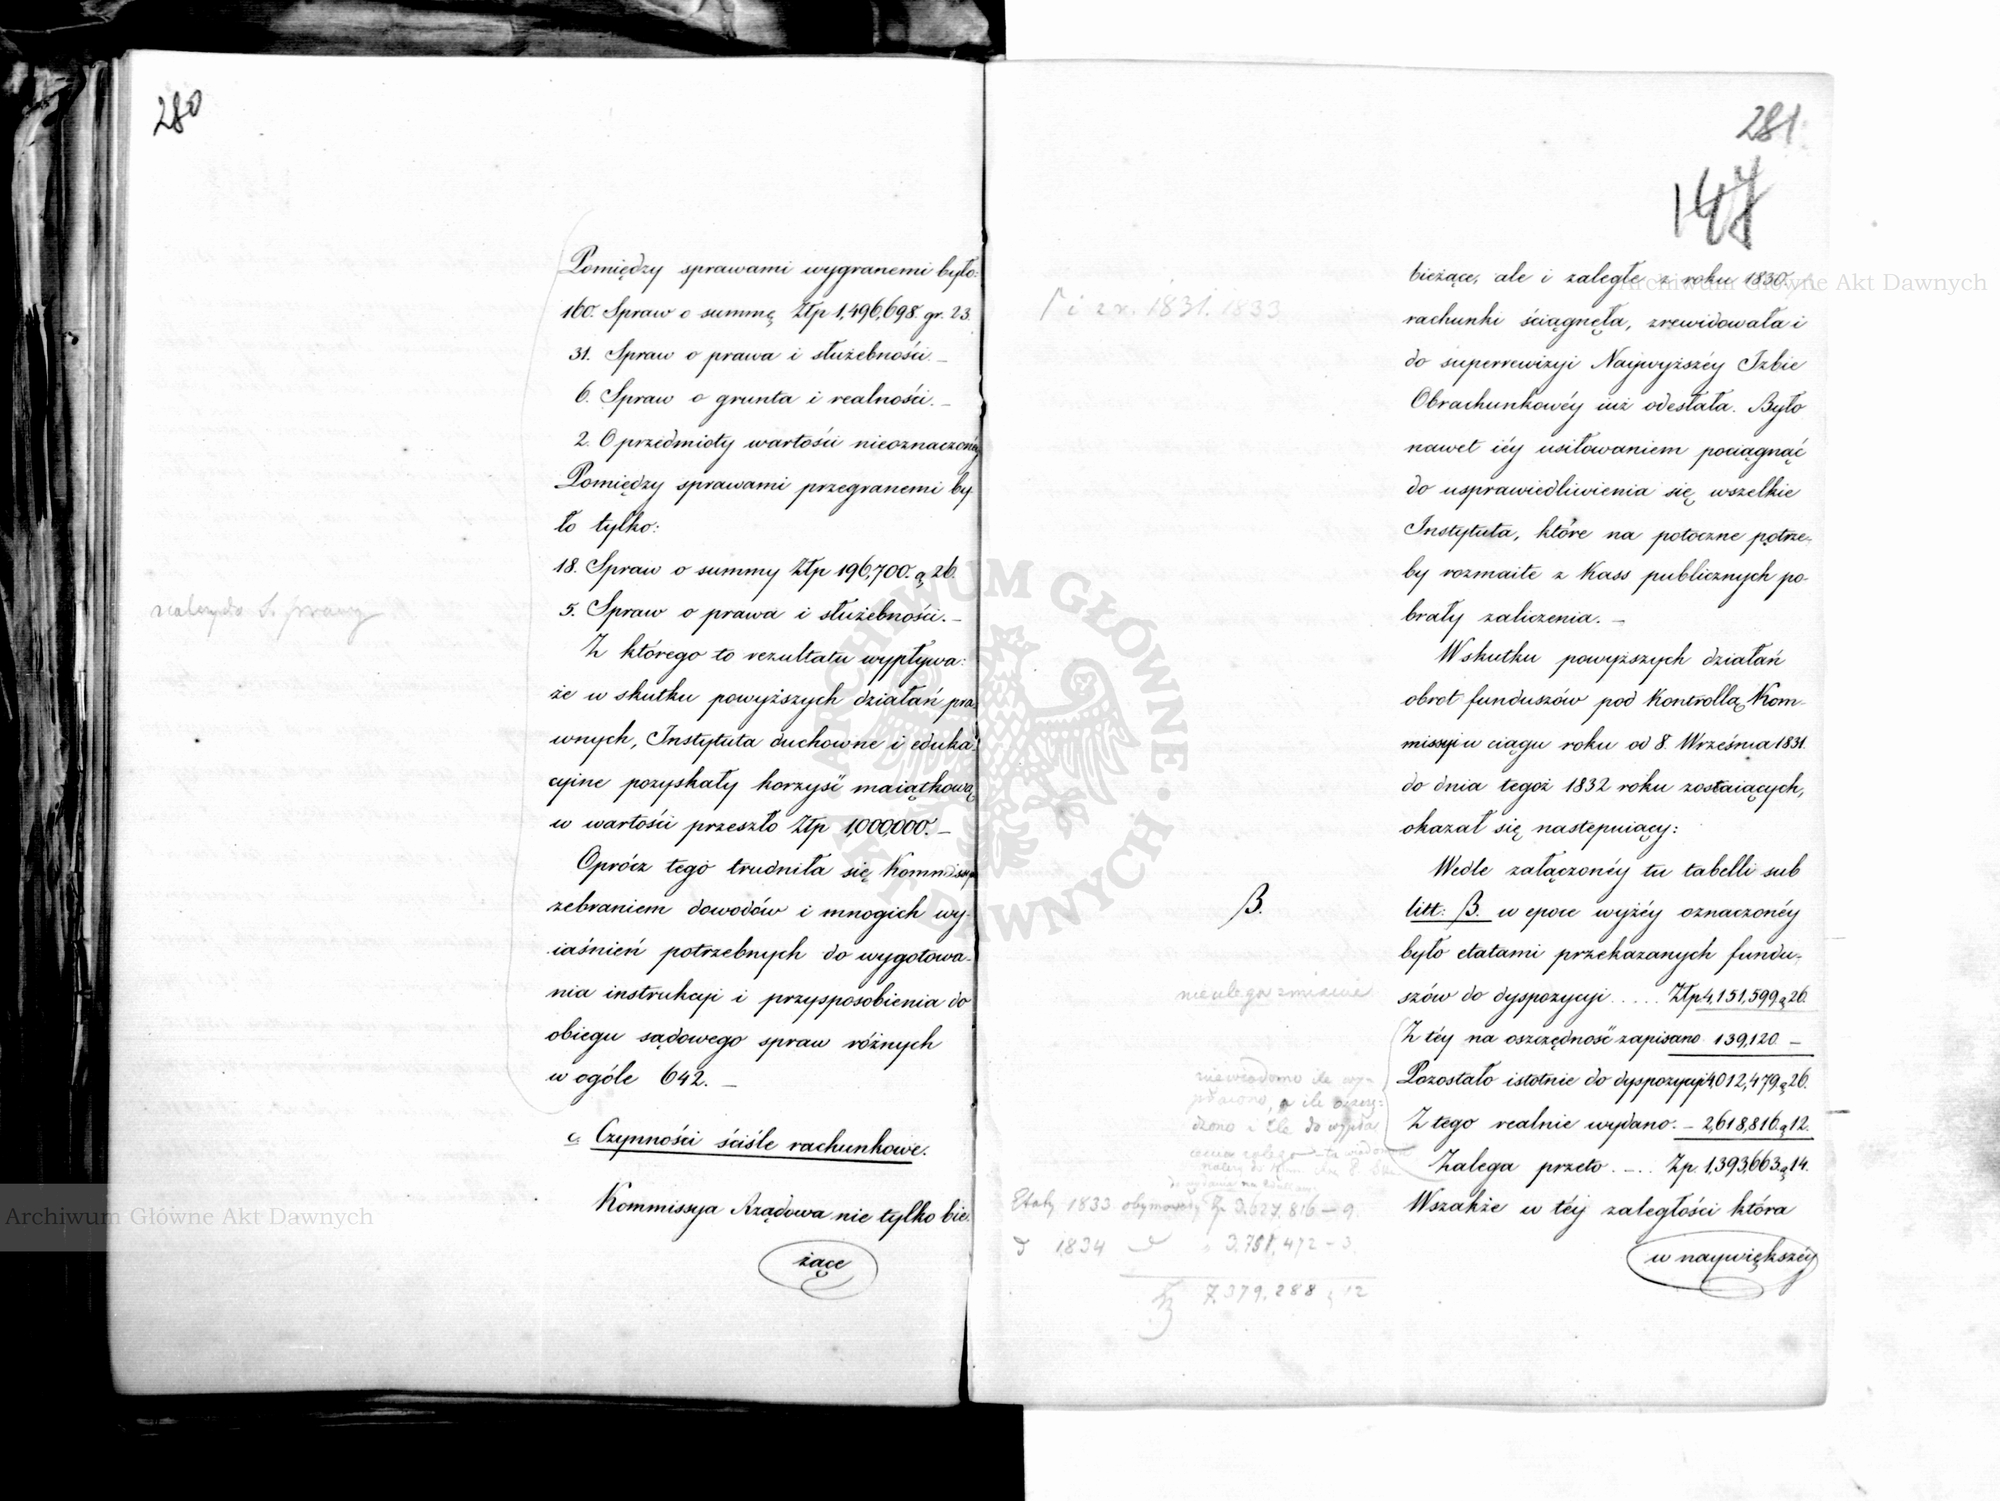 280
Pomiędzy sprawami wygranemi było:
160. Spraw o summę Złp 1,496,698. gr. 23.
31. Spraw o prawa i służebności. –
6. Spraw o grunta i realności. –
2. O przedmioty wartości nieoznaczonéy
Pomiędzy sprawami przegranemi by-
ło tylko:
18. Spraw o summy Złp 196,700. g 26.
5. Spraw o prawa i służebności. –
Z którego to rezultatu wypływa:
że w skutku powyższych działań pra-
wnych, Instytuta duchowne i eduka-
cyine pozyskały korzyść maiątkową
w wartości przeszło Złp 1,000,000. –
Oprócz tego trudniła się Kommissya
zebraniem dowodów i mnogich wy-
iaśnień potrzebnych do wygotowa-
nia instrukcji i przysposobienia do
obiegu sądowego spraw różnych
w ogóle 642. –
c. Czynności ściśle rachunkowe.
Kommissya Rządowa nie tylko bie-
żące
281
147
i z r. 1831. 1833
bieżące, ale i zaległe z roku 1830.
rachunki ściągnęła, zrewidowała i
do superrewizyi Naywyższéy Izbie
Obrachunkowéy iuż odesłała. Było
nawet iéy usiłowaniem pociągnąć
do usprawiedliwienia się wszelkie
Instytuta, które na potoczne potrze-
by rozmaite z Kass publicznych po-
brały zaliczenia. –
W skutku powyższych działań
obrot funduszów pod Kontrollą Kom-
missyi w ciągu roku od 8. Września 1831.
do dnia tegoż 1832 roku zostaiących,
okazał się następuiący:
Wedle załączonéy tu tabelli sub
B.
litt: B. w epoce wyżéy oznaczonéy
było etatami przekazanych fundu-
szów do dyspozycyi ..... Złp 4,151,599 g 26.
nieulega zmianie
Z téy na oszczędność zapisano 139,120 –
Pozostało istotnie do dyspozycyi 4,012,479 g 26.
niewiadomo ile wy-
płacono, a ile
Z tego realnie wydano. – 2,618,816. g 12.
Zalega przeto. – .. Zp. 1,393,663 g 14.
Wszakże w téy zaległości która
Etaty 1833 obymowały Zp 3.627,816 – 9.
d 1834 d " 3,751,472 – 3.
7.379.288 g 12
w naywiększéy
Archiwum Główne Akt Dawnych
Archiwum Główne Akt Dawnych
ARCHIWUM GŁÓWNE AKT DAWNYCH